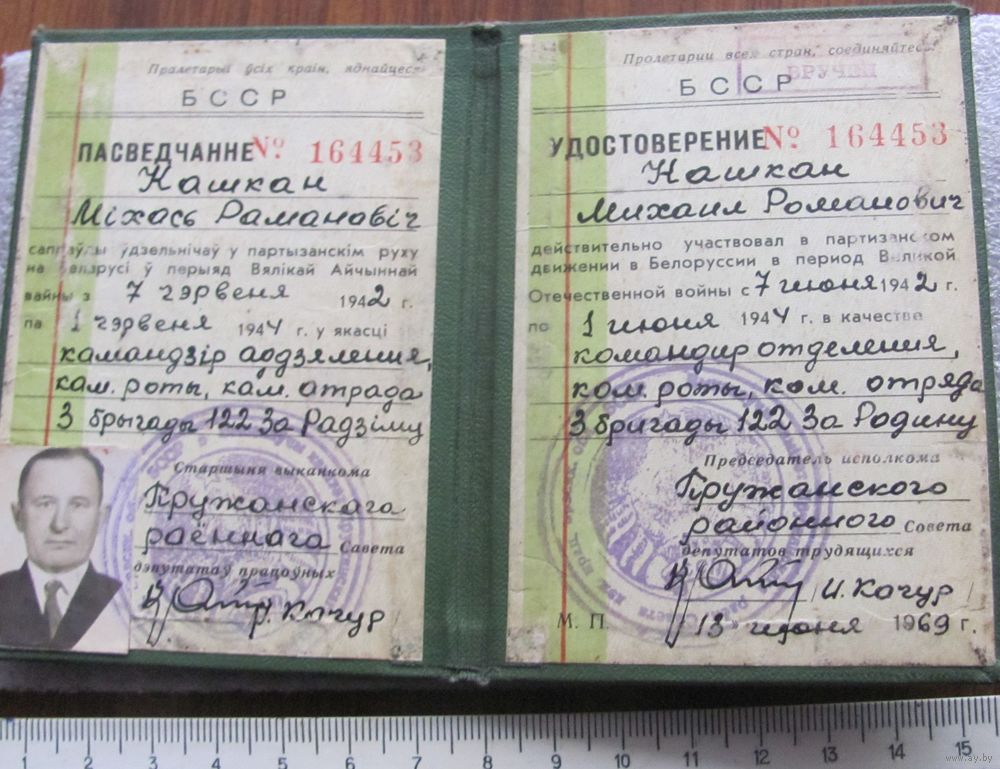 Пралетарыі ўсіх краін, яднайцеся
БССР
ПАСВЕДЧАННЕ № 164453
Кашкан
Міхась Раманавіч
сапраўды ўдзельнічаў у партызанскім руху
на Беларусі ў перыяд Вялікай Айчыннай
вайны з 7 чэрвеня 1942 г.
па 1 чэрвеня 1944 г. у якасці
камандзір аддзялення,
кам. роты, кам. атрада
3 брыгады 122 За Радзіму
Старшыня выканкома
Пружанскага
раённага Савета
дэпутатаў працоўных
Качур
Пролетарии всех стран, соединяйтесь
ВРУЧЕН
БССР
УДОСТОВЕРЕНИЕ № 164453
Кашкан
Михаил Романович
действительно участвовал в партизанском
движении в Белоруссии в период Великой
Отечественной войны с 7 июня 1942 г.
по 1 июня 1944 г. в качестве
командир отделения,
ком. роты, ком. отряда
3 бригады 122 За Родину
Председатель исполкома
Пружанского
районного Совета
депутатов трудящихся
И. Качур
М. П. "13" июня 1969 г.
1 2 3 4 5 6 7 8 9 10 11 12 13 14 15
www.ay.by